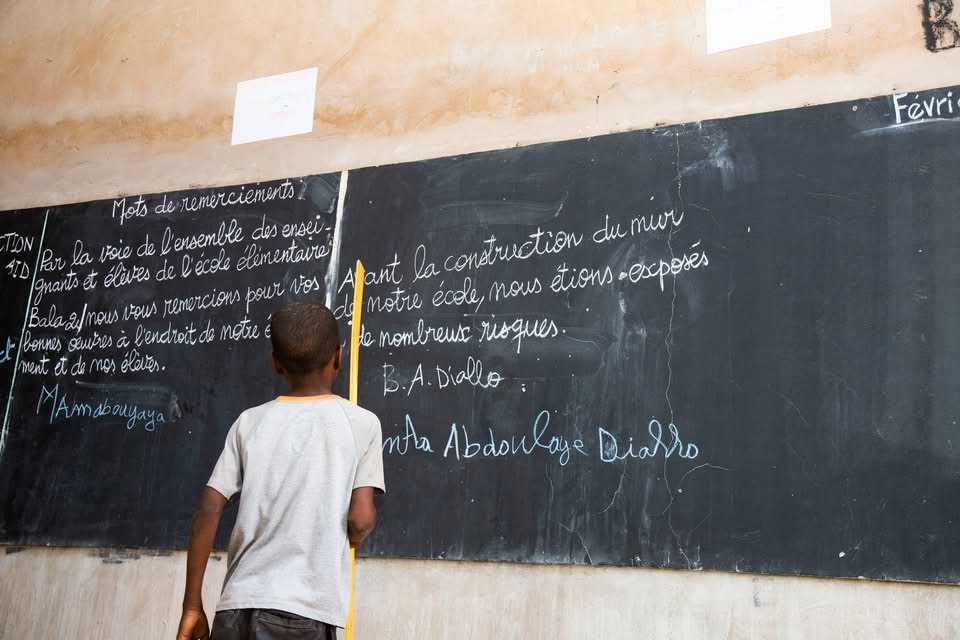 CTION
Mots de remerciements
Par la voie de l'ensemble des ensei-
gnants et élèves de l'école élémentaire
Bala 2, nous vous remercions pour vos
bonnes œuvres à l'endroit de notre
ment et de nos élèves.
MAmabouyaya
Avant la construction du mur
de notre école, nous étions exposés
de nombreux risques.
B.A.Diallo
Abdoulaye Diallo
Févri
B